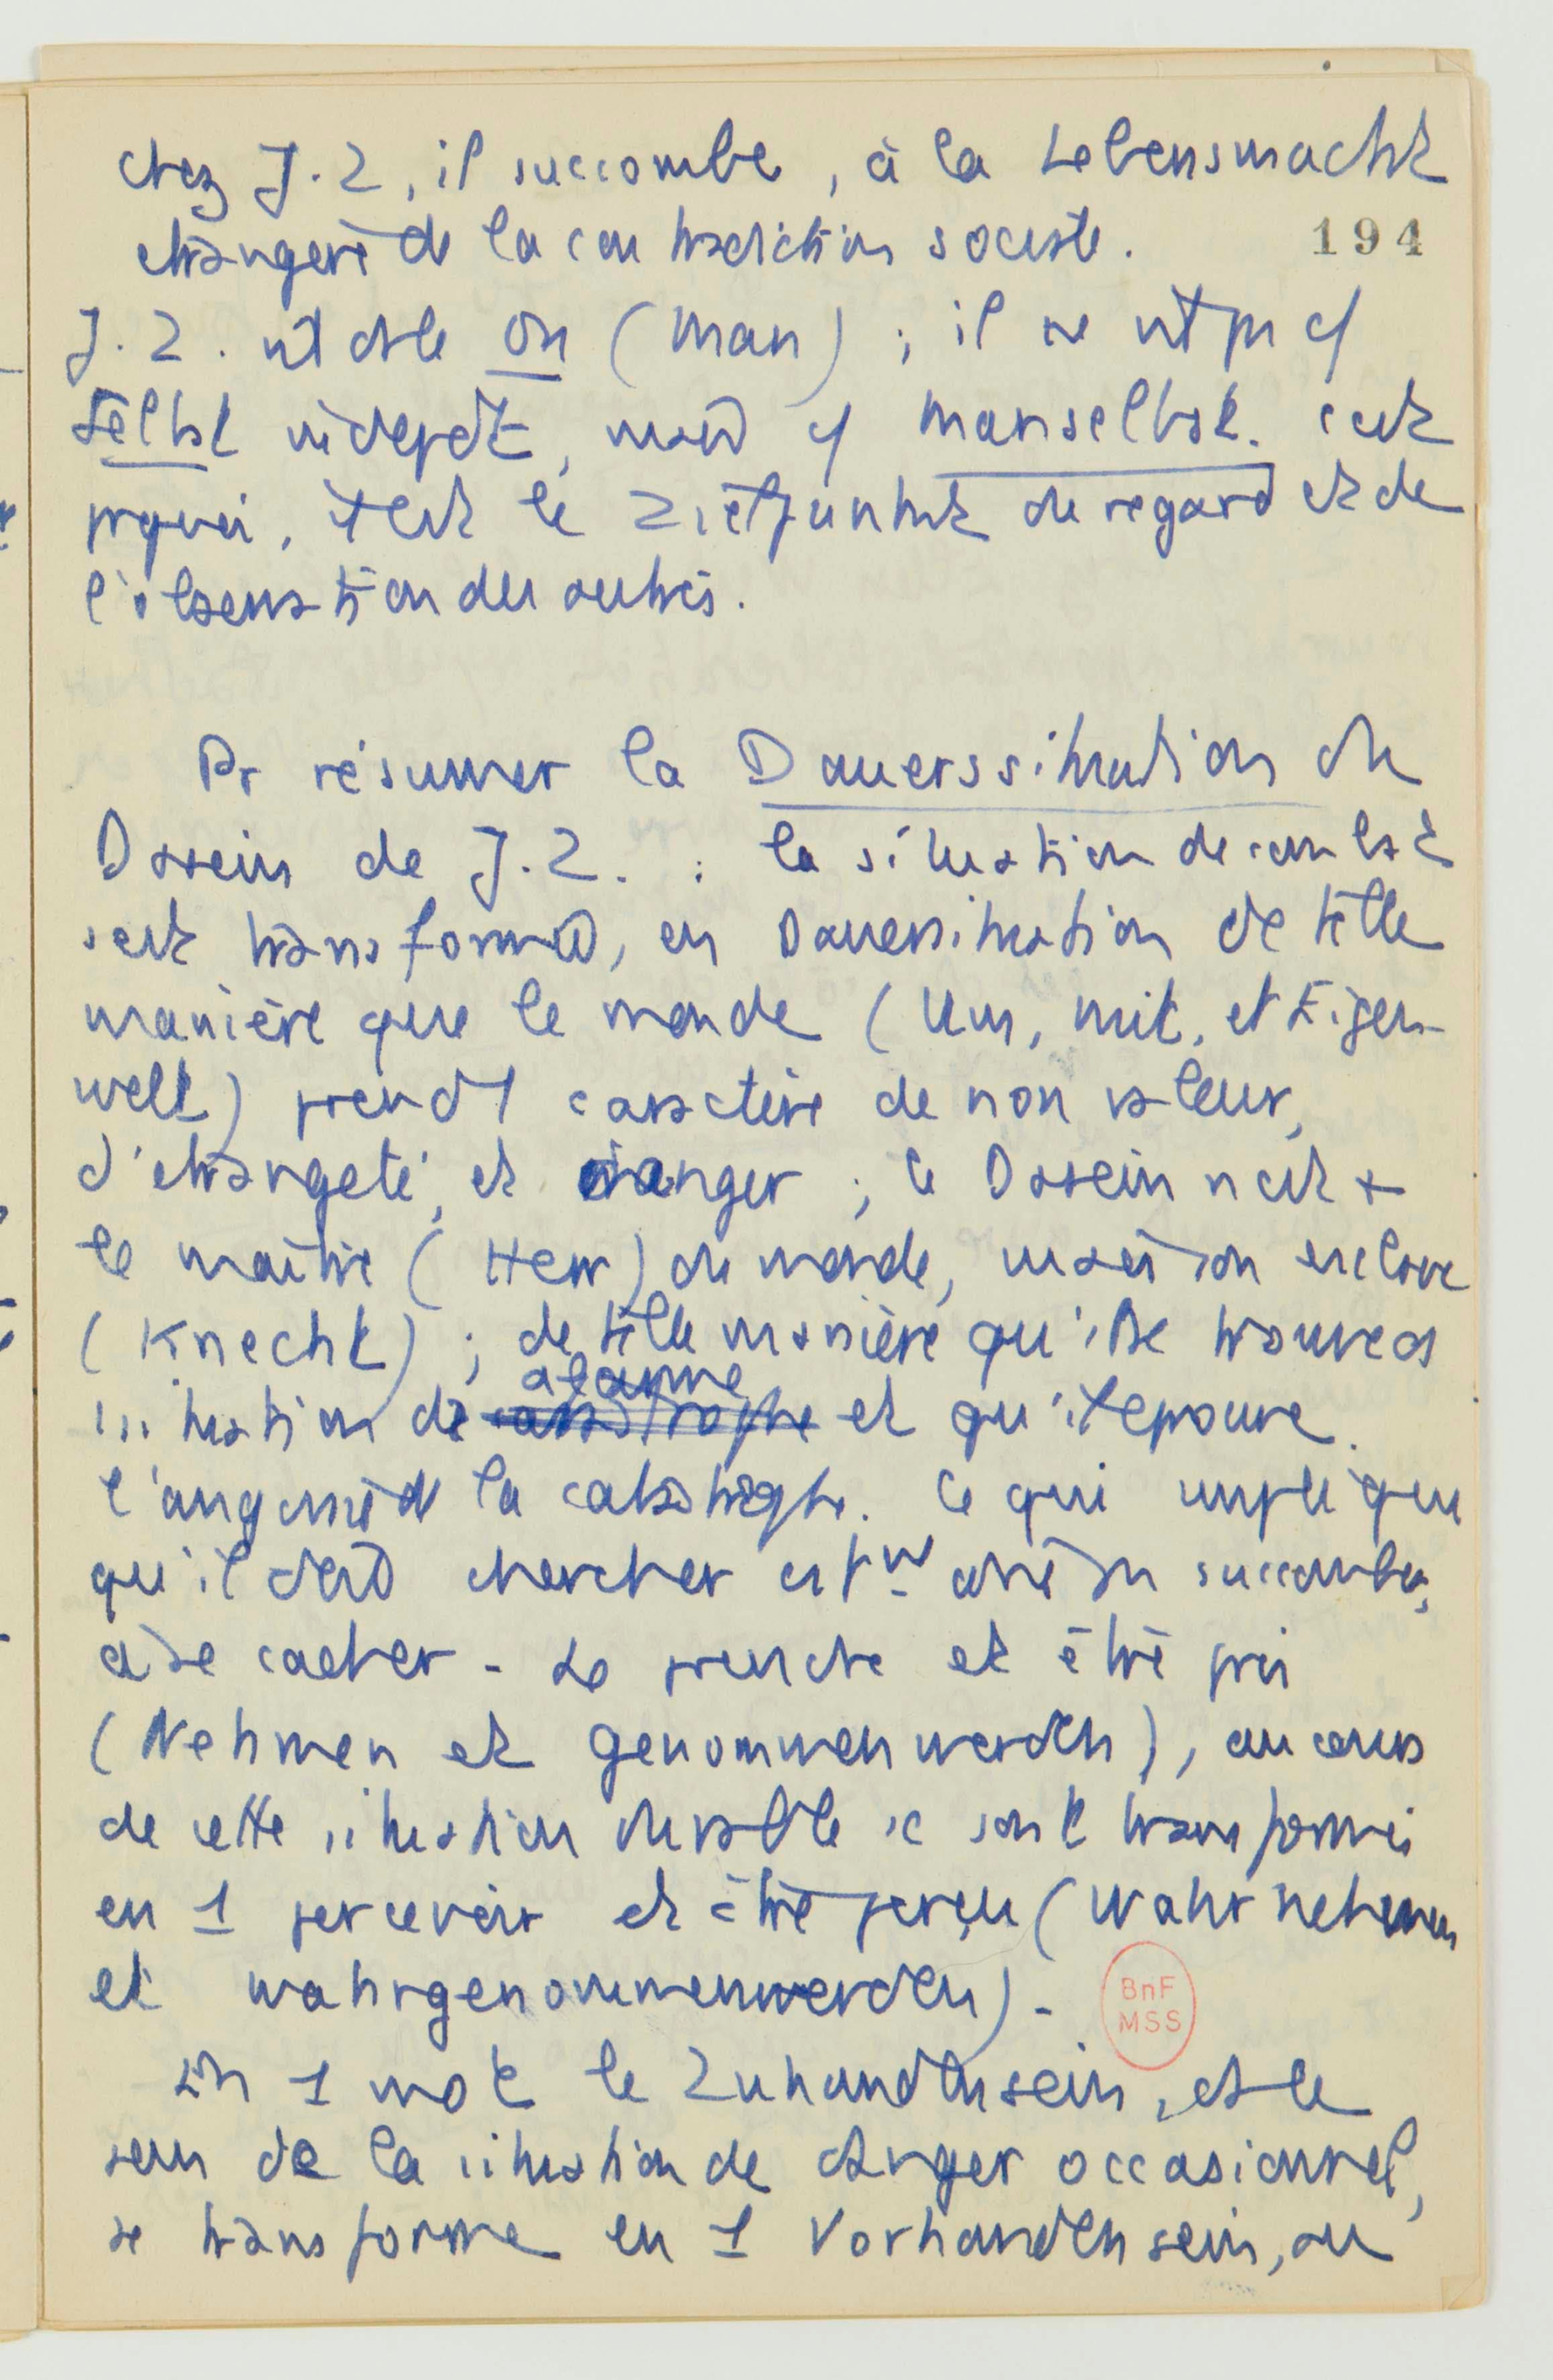 chez J.Z, il succombe, à la Lebensmacht
étrangère de la contradiction sociale.
194
J.Z. vit ds le on (Man) ; il ne vit pas cf
Selbst indépdt, mais cf Manselbst. C'est
pquoi, il est le Zielpunkt du regard et de
l'observation des autres.
Pr résumer la Dauerssituation du
Dasein de J.Z. : la situation de combat
s'est transformée, en Dauersituation de telle
manière que le monde (Um, mit, et Eigen-
welt) prend 1 caractère de non valeur,
d'étrangeté, et danger ; le Dasein n'est +
le maître (Herr) du monde, mais son esclave
(Knecht) ; de telle manière qu'il se trouve ds
1 situation de alarme et qu'il éprouve
l'angoisse de la catastrophe. Ce qui implique
qu'il doit chercher à être succomber,
à se cacher - Le prendre et être pris
(Nehmen et genommenwerden), au cours
de cette situation durable se sont transformés
en 1 percevoir et être perçu (Wahrnehmen
et wahrgenommenwerden) -
BnF
MSS
En 1 mot le Zuhandensein, ds le
sens de la situation de danger occasionnel,
se transforme en 1 Vorhandensein, au